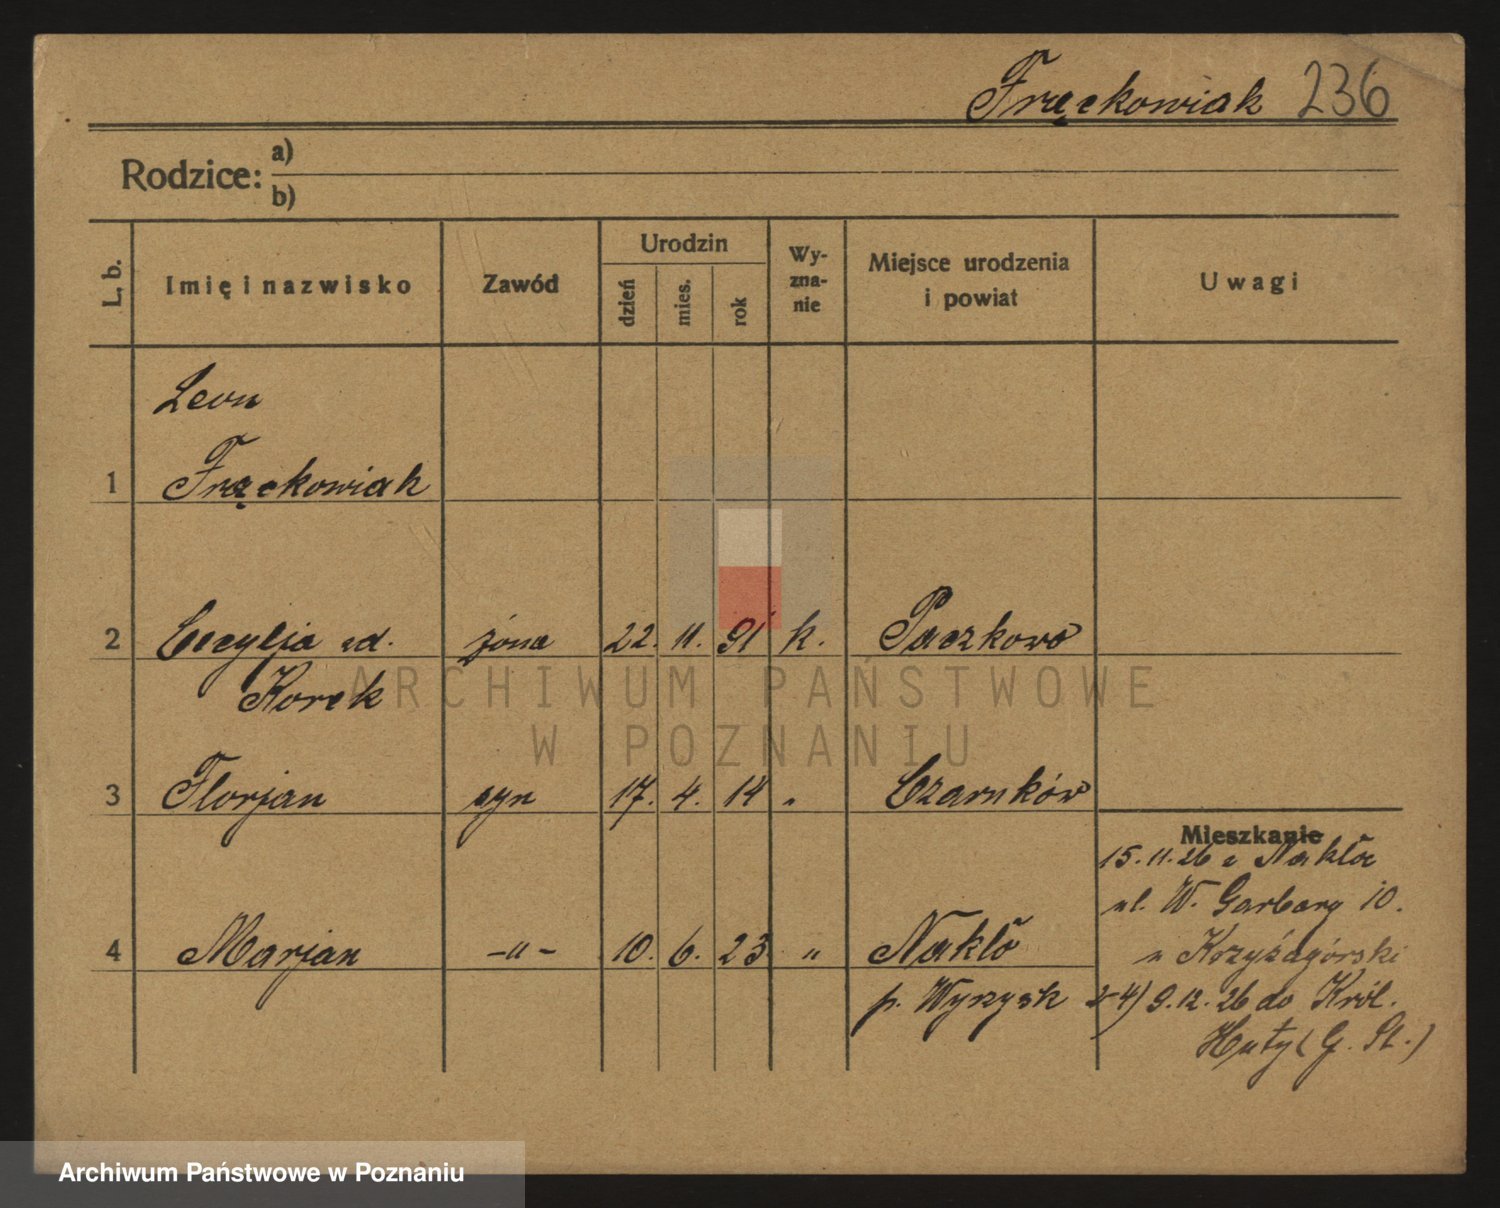 Frąckowiak 236
Rodzice: a)
b)
L. b.
Imię i nazwisko
Zawód
Urodzin
dzień
mies.
rok
Wy-
zna-
nie
Miejsce urodzenia
i powiat
Uwagi
Leon
1 Frąckowiak
2 Cecylja zd. żona 22. 11. 91 k. Paczkowo
Korek
3 Florjan syn 17. 4. 14 „ Czarnków
4 Marjan -„- 10. 6. 23 „ Nakło
p. Wyrzysk
Mieszkanie
15.11.26 z Nakła
ul. W. Garbary 10.
u Krzyżagórski
2-4) 9.12.26 do Król.
Huty (G. Śl.)
ARCHIWUM PAŃSTWOWE
W POZNANIU
Archiwum Państwowe w Poznaniu